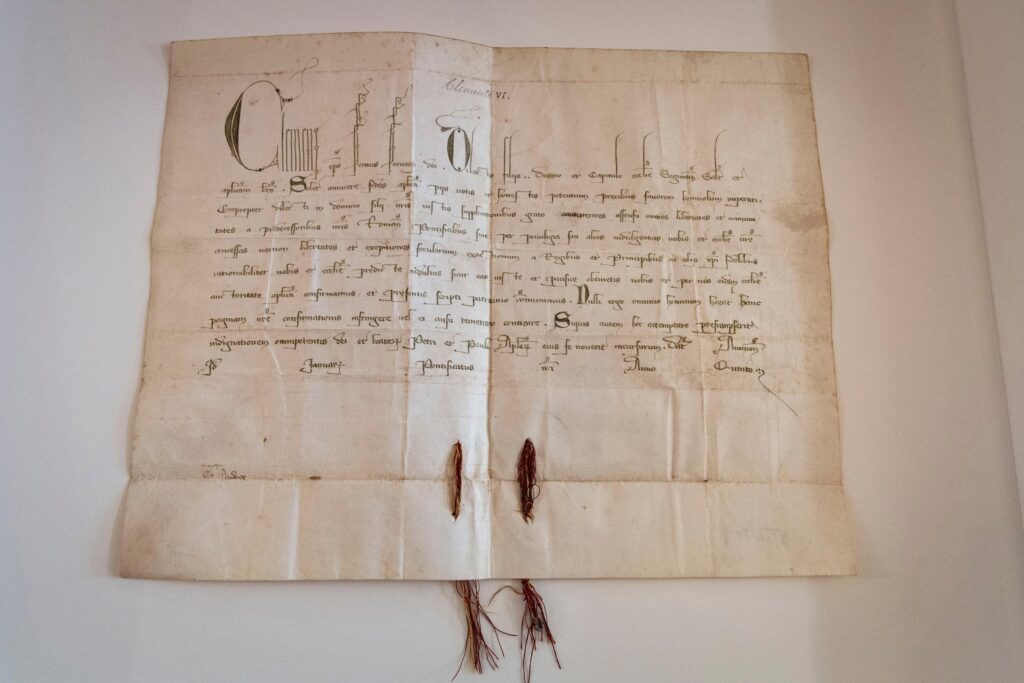 Clemente VI.
Clemens eps servus servor dei . filiis .. Decano et Capitulo ecclie Salt et
aplicam ben . Solet annuere sedes aplica piis votis et petentium precibus favorem benivolum impertiri .
Eapropter dilecti in domino filii vris iustis supplicationibus grato assensu omnes libertates et immuni
tates a predecessoribus nris Roman Pontificibus sive per privilegia seu alias indulgentias vobis et ecclie vre
concessas necnon libertates et exemptiones secularium exactionum a Regibus et Principibus ac aliis xpi fidelibus
rationabiliter vobis et ecclie predicte indultas sicut eas iuste et pacifice obtinetis vobis et per vos eidem ecclie
auctoritate aplica confirmamus et presentis scripti patrocinio communimus . Nulli ergo omnino hominum liceat hanc
paginam nre confirmationis infringere vel ei ausu temerario contraire . Siquis autem hoc attemptare presumpserit
indignationem omnipotentis dei et beator Petri et Pauli Aplor eius se noverit incursurum . Dat Avinion
Januar Pontificatus nri Anno Quinto